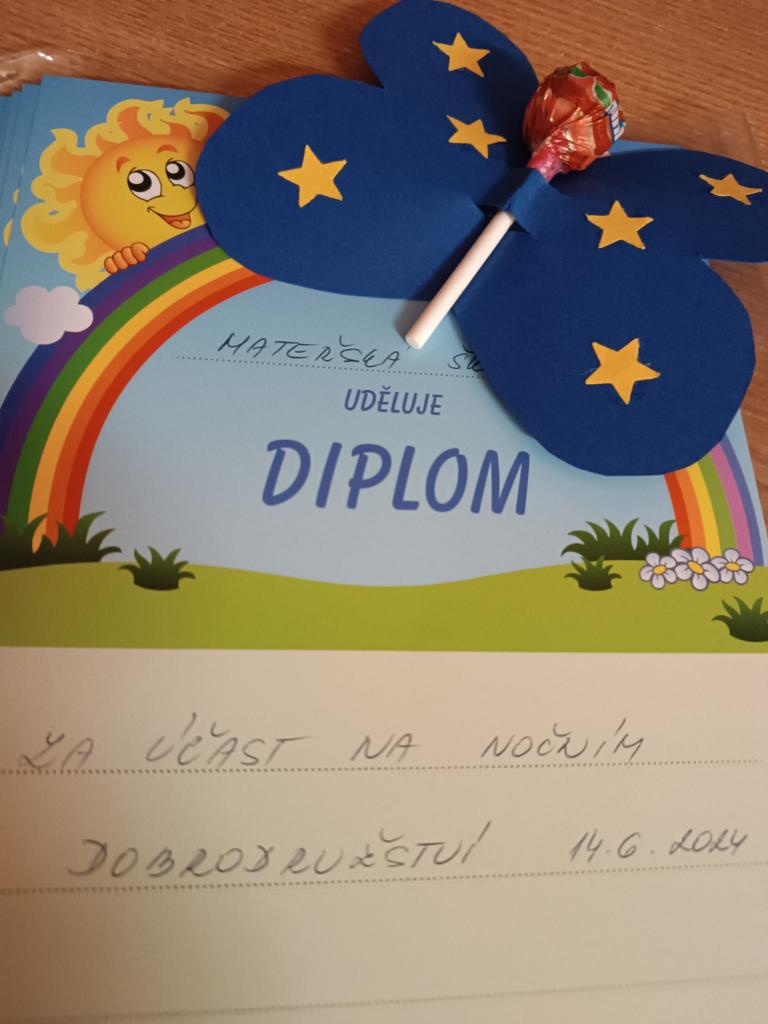 MATEŘSKÁ
UDĚLUJE
DIPLOM
ZA ÚČAST NA NOČNÍM
DOBRODRUŽSTVÍ 14.6.2024